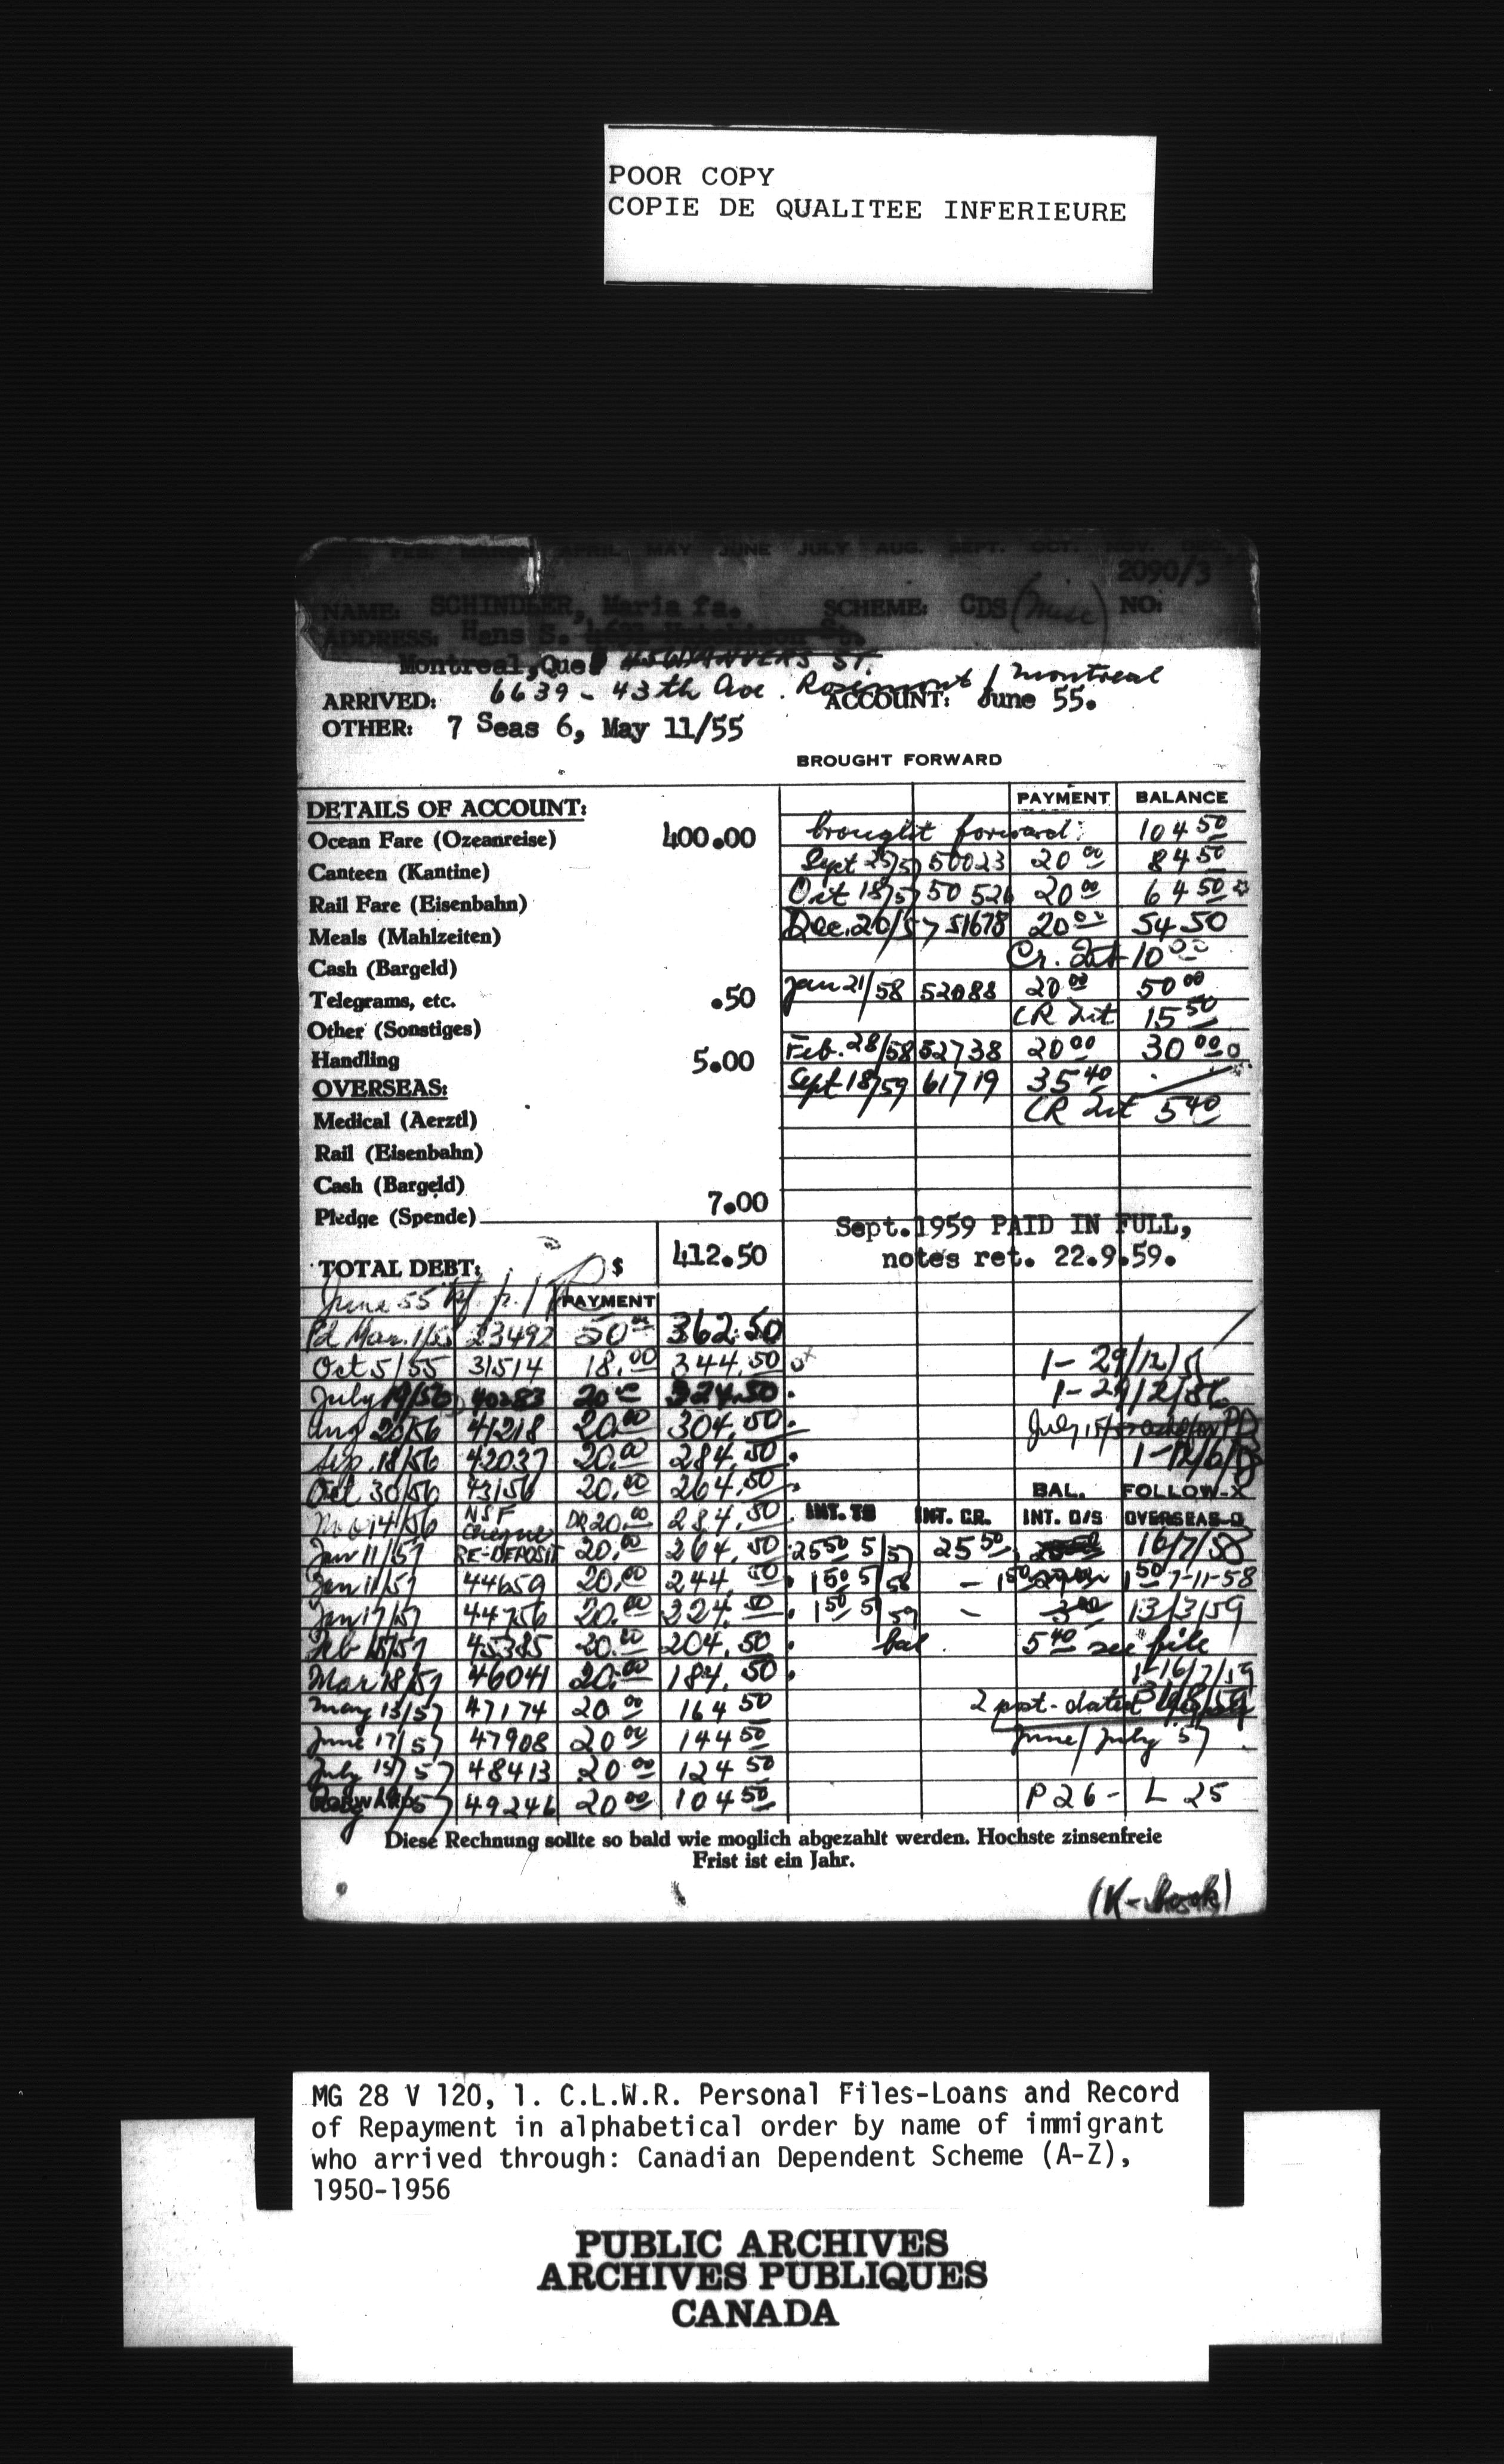 POOR COPY
COPIE DE QUALITEE INFERIEURE
FEB. MARCH APRIL MAY JUNE JULY AUG. SEPT. OCT. NOV. DEC.
2090/3
NAME: SCHINDLER, Maria fa. SCHEME: CDS (Misc) NO:
ADDRESS: Hans S. Hutchison St.
Montreal, Que. ST.
6639 - 43th Ave. Rosemont / Montreal
ARRIVED: ACCOUNT: June 55.
OTHER: 7 Seas 6, May 11/55
BROUGHT FORWARD
DETAILS OF ACCOUNT: PAYMENT BALANCE
Ocean Fare (Ozeanreise) 400.00 brought forward: 104 50
Canteen (Kantine) Sept 25/57 50023 20 00 84 50
Rail Fare (Eisenbahn) Oct 18/57 50526 20 00 64 50
Meals (Mahlzeiten) Dec. 20/57 51678 20 00 54.50
Cash (Bargeld) Cr. Int 10 00
Telegrams, etc. .50 Jan 21/58 52088 20 00 50 00
Other (Sonstiges) CR Int 15 50
Handling 5.00 Feb. 28/58 52738 20 00 30 00
OVERSEAS: Sept 18/59 61719 35 40
Medical (Aerztl) CR Int 5 40
Rail (Eisenbahn)
Cash (Bargeld)
Pledge (Spende) 7.00
Sept. 1959 PAID IN FULL,
TOTAL DEBT: $ 412.50 notes ret. 22.9.59.
June 55 PAYMENT
Pd Mar. 1/55 23492 50 00 362.50
Oct 5/55 31514 18.00 344.50 1-29/12/5
July 19/56 40283 20 324.50 1-29/12/56
Aug 20/56 41218 20.00 304.50 July 15/5
Sep. 18/56 42037 20.00 284.50
Oct 30/56 43156 20.00 264.50 BAL. FOLLOW-X
Nov 14/56 NSF Cheque DR 20.00 284.50 INT. TO INT. CR. INT. O/S OVERSEAS-O
Jan 11/57 RE-DEPOSIT 20.00 264.50 25 50 5/57 25 50 16/7/58
Jan 11/57 44659 20.00 244.50 1 50 5/58 - 1 50 1 50 7-11-58
Jan 17/57 44756 20.00 224.50 1 50 5/59 - 3 00 13/3/59
Feb 15/57 45385 20.00 204.50 bal. 5 40 see file
Mar 18/57 46041 20.00 184.50 1-16/7/59
May 13/57 47174 20 00 164 50 2 post-dated
June 17/57 47908 20 00 144 50 June/July 57
July 15/57 48413 20 00 124 50
49246 20 00 104 50 P 26 - L 25
Diese Rechnung sollte so bald wie moglich abgezahlt werden. Hochste zinsenfreie
Frist ist ein Jahr.
(K-book)
MG 28 V 120, 1. C.L.W.R. Personal Files-Loans and Record
of Repayment in alphabetical order by name of immigrant
who arrived through: Canadian Dependent Scheme (A-Z),
1950-1956
PUBLIC ARCHIVES
ARCHIVES PUBLIQUES
CANADA